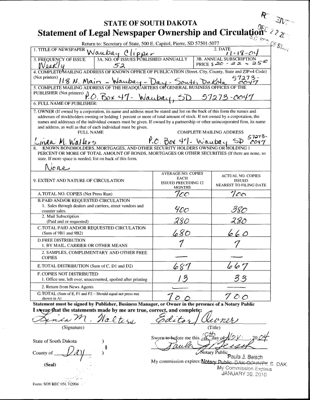 STATE OF SOUTH DAKOTA
Statement of Legal Newspaper Ownership and Circulation
Return to: Secretary of State, 500 E. Capitol, Pierre, SD 57501-5077
1. TITLE OF NEWSPAPER Waubay Clipper
2. DATE 11-18-04
3. FREQUENCY OF ISSUE Weekly
3A. NO. OF ISSUES PUBLISHED ANNUALLY 52
3B. ANNUAL SUBSCRIPTION PRICE $
4. COMPLETE MAILING ADDRESS OF KNOWN OFFICE OF PUBLICATION (Street, City, County, State and ZIP+4 Code) (Not printers)
118 N. Main - Waubay - Day - South Dakota 57273-0047
5. COMPLETE MAILING ADDRESS OF THE HEADQUARTERS OF GENERAL BUSINESS OFFICES OF THE PUBLISHER (Not printers)
P.O. Box 47 - Waubay, SD 57273-0047
6. FULL NAME OF PUBLISHER:
7. OWNER (If owned by a corporation, its name and address must be stated and also the names and addresses of stockholders owning or holding 1 percent or more of total amount of stock. If not owned by a corporation, the names and addresses of the individual owners must be given. If owned by a partnership or other unincorporated firm, its name and address, as well as that of each individual must be given.
FULL NAME
COMPLETE MAILING ADDRESS
Linda M. Walters P.O. Box 47 - Waubay SD 57273-0047
8. KNOWN BONDHOLDERS, MORTGAGES, AND OTHER SECURITY HOLDERS OWNING OR HOLDING 1 PERCENT OR MORE OF TOTAL AMOUNT OF BONDS, MORTGAGES OR OTHER SECURITIES (If there are none, so state. If more space is needed, list on back of this form.
None
9. EXTENT AND NATURE OF CIRCULATION
AVERAGE NO. COPIES EACH ISSUED PRECEDING 12 MONTHS
ACTUAL NO. COPIES ISSUED NEAREST TO FILING DATE
A. TOTAL NO. COPIES (Net Press Run) 700 700
B. PAID AND/OR REQUESTED CIRCULATION
1. Sales through dealers and carriers, street vendors and counter sales. 400 380
2. Mail Subscription (Paid and/or requested) 280 280
C. TOTAL PAID AND/OR REQUESTED CIRCULATION (Sum of 9B1 and 9B2) 680 660
D. FREE DISTRIBUTION
1. BY MAIL, CARRIER OR OTHER MEANS 7 7
2. SAMPLES, COMPLIMENTARY AND OTHER FREE COPIES
E. TOTAL DISTRIBUTION (Sum of C, D1 and D2) 687 667
F. COPIES NOT DISTRIBUTED
1. Office use, left over, unaccounted, spoiled after printing 13 33
2. Return from News Agents
G. TOTAL (Sum of E, F1 and F2 - Should equal net press run shown in A) 700 700
Statement must be signed by Publisher, Business Manager, or Owner in the presence of a Notary Public
I swear that the statements made by me are true, correct, and complete:
Linda M. Walters Editor/Owner
(Signature) (Title)
State of South Dakota )
Sworn to before me this
Nov 2004
County of Day )
Notary Public
Paula J. Besch
(Seal)
My commission expires
My Commission Expires
JANUARY 20, 2010
Form: SOS REC 051 7/2004